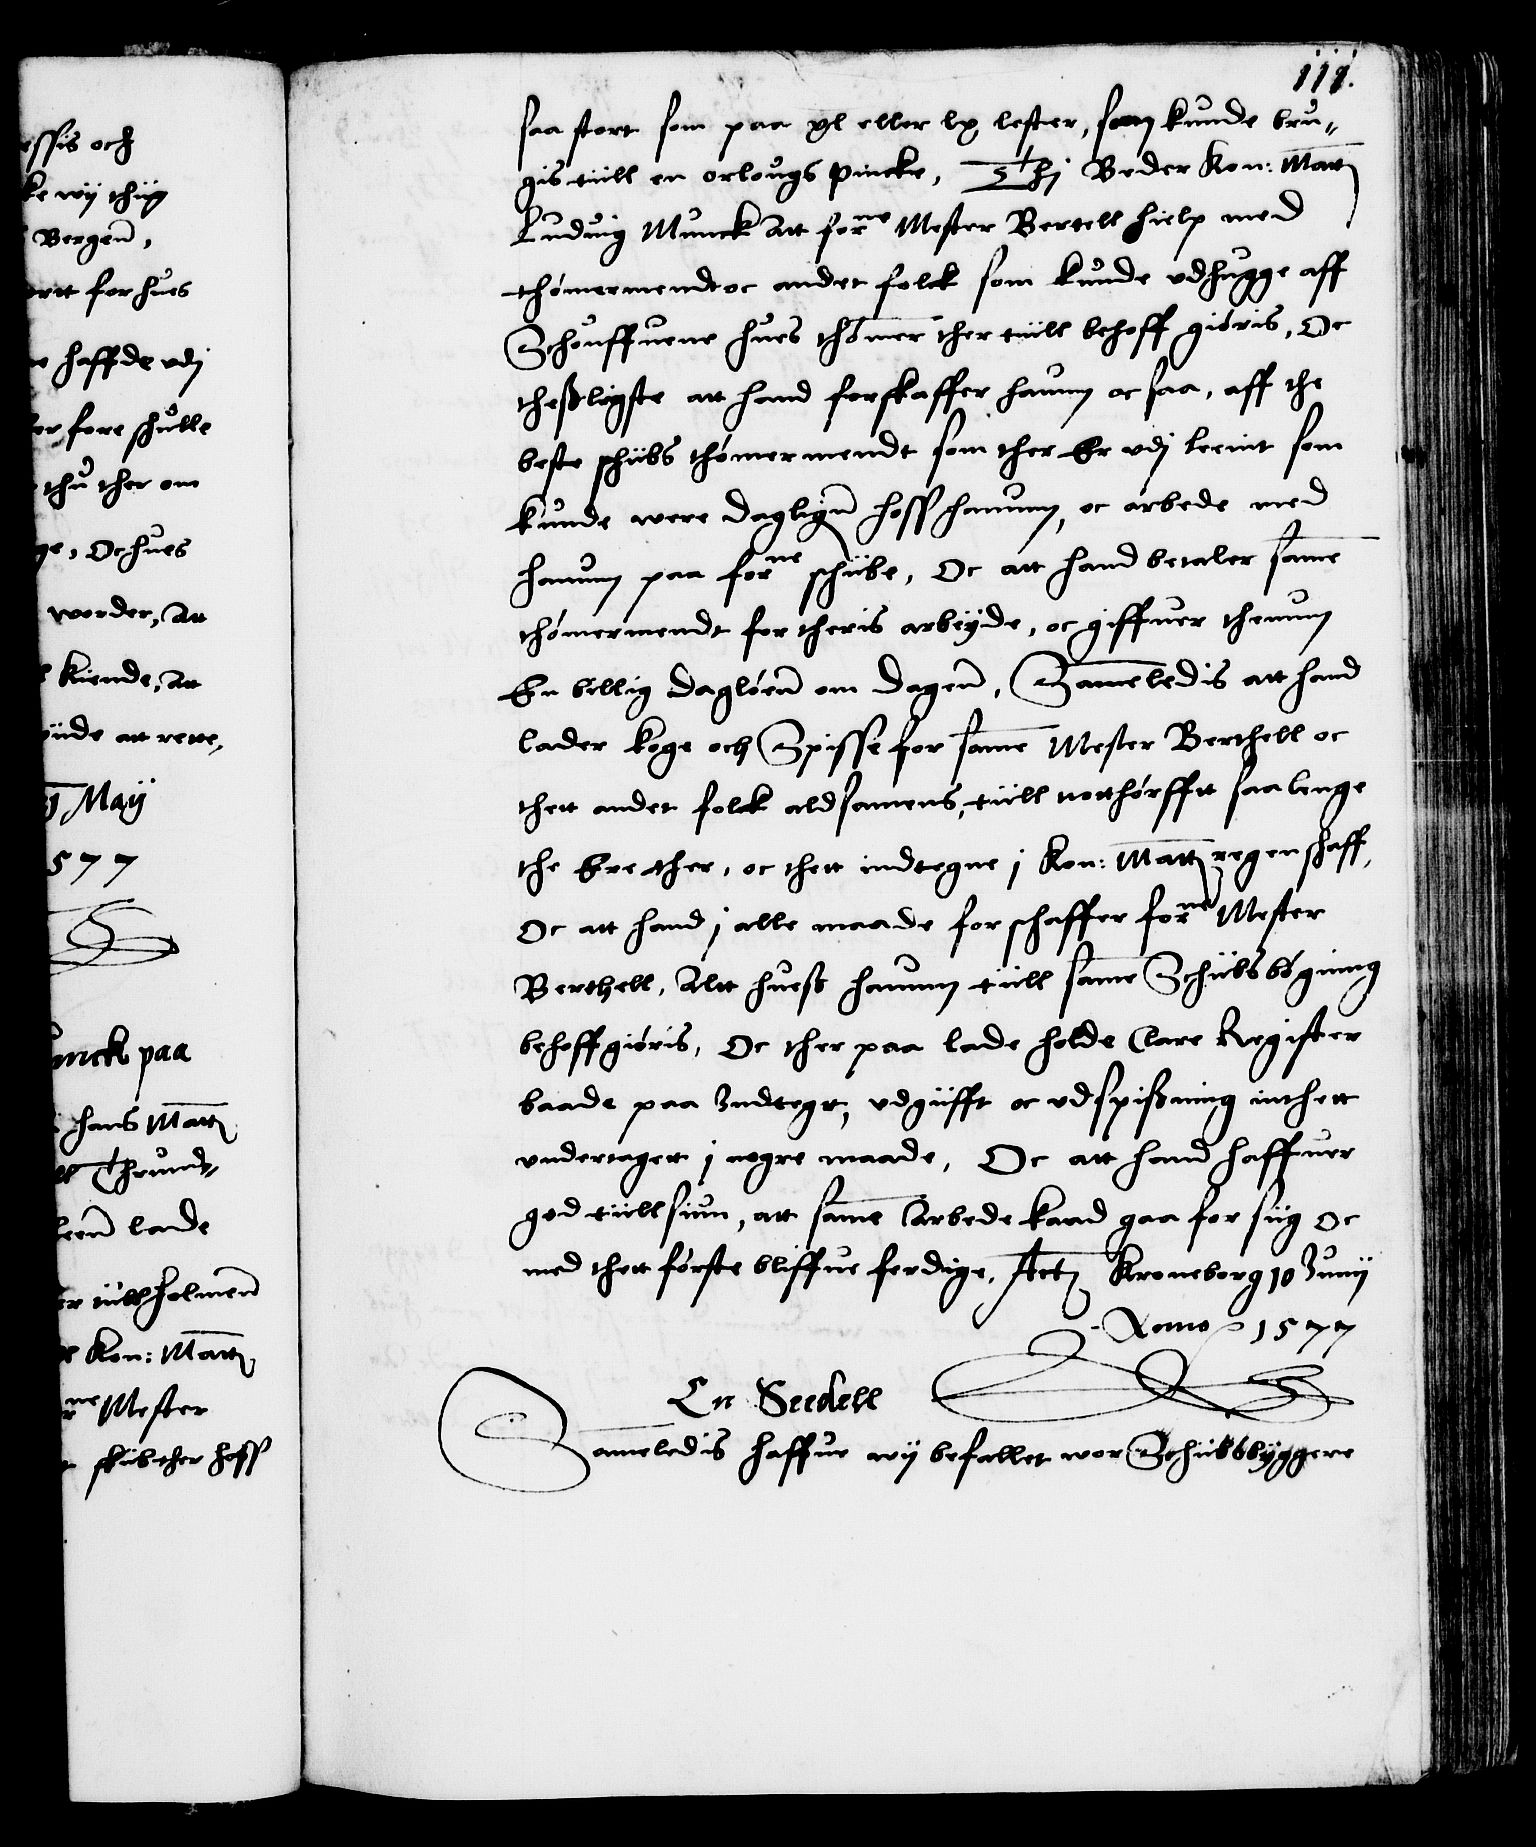 iij.
essis och
ke wij thüg
Bergenn,
ortt for hues
e haffde udj
er fore schulle
thu ther om
ge, Oc hues
worder, Att
kiende, Att
üde att rette,
Maij
577
unck paa
hans Matt
Thrund-
leenn lade
er tiill holmenn
Kon: Matt
ne Mester
skib ther hoss
saa stort som paa xl eller lx lester, som kunde bru-
gis tiill en orlougs Pincke, Thj Beder Kon: Matt
Luduig Munck Att forne Mester Bertell hielp med
thømmermendt oc andet folck som kunde udhugge aff
Schouffuene hues thømmer ther tiill behoff giøris, Oc
thesligste att hand forskaffer hanum oc saa, aff the
beste schiibs thømermendt som ther Er udj leenit som
kunde were dagligenn hoss hanum, oc arbede med
hanum paa forne schiibe, Oc att hand betaler same
thømermendt for theris arbeyde, oc giffuer thenum
En billig dagløenn om dagenn, Sameledis att hand
lader koge och Spisse for same Mester Berthell oc
thett andet folck aldsamens, tiill notthørfftt saa lenge
the Ere ther, oc thett indtegne j Kon: Matt regenschaff,
Oc att hand j alle maade for schaffer forne Mester
Berthell, Altt huess hanum tiill same Schiibsbögning
behoff giøris, Oc ther paa lade holde Clare Register
baade paa Indtegt, udgiifft oc udspissning inthett
undertagett j nogre maade, Oc att hand haffuer
god tiillsiun, att same Arbede kaad gaa for siig oc
med thett første bliffue ferdige, Actj Kroneborg 10 Junij
Anno 1577
En Seedell
Sameledis haffue wij befallet wor Schiibsbyggere